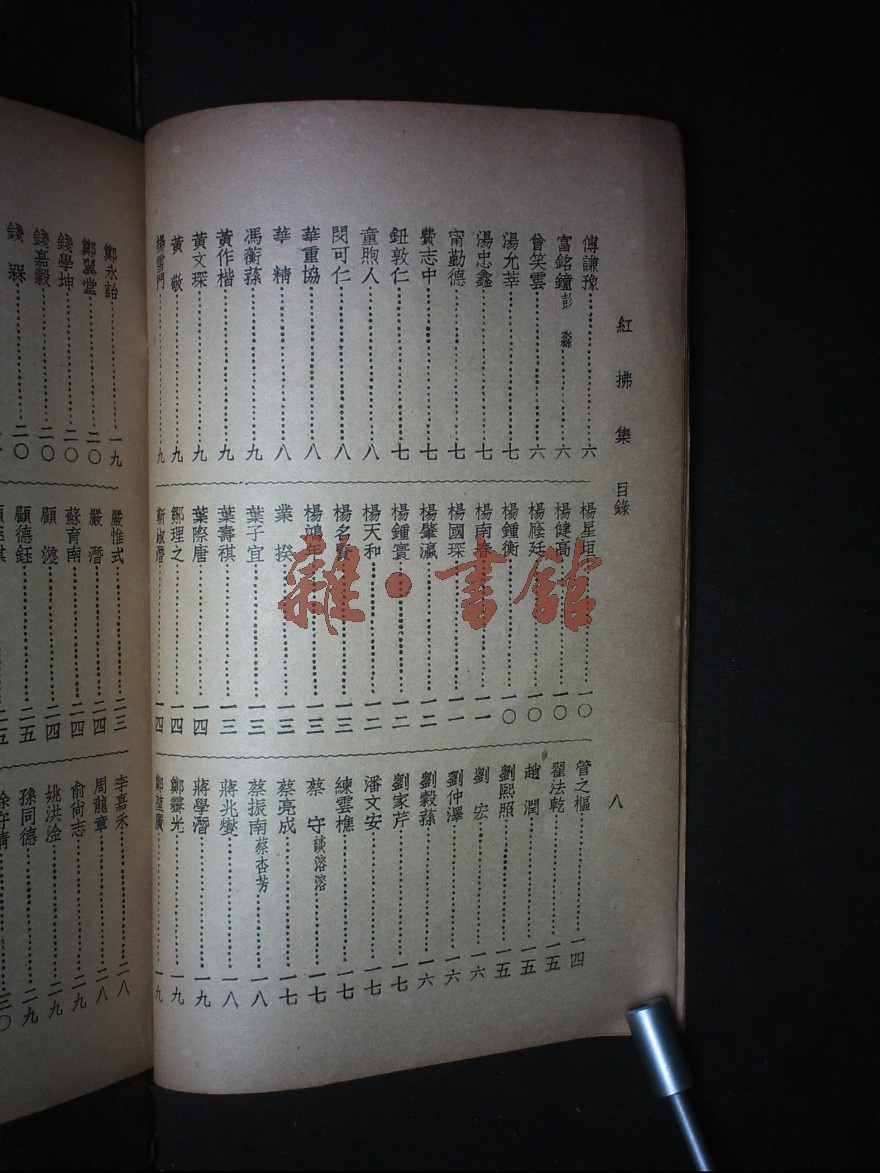 紅拂集 目錄 八
傅謙豫 六
富銘鐘 彭淼 六
曾笑雲 六
湯允莘 七
湯忠鑫 七
甯勤德 七
費志中 七
鈕敦仁 七
童煦人 八
閔可仁 八
華重協 八
華精 八
馮蘅蓀 九
黃作楷 九
黃文琛 九
黃敬 九
楊雪門 九
楊星垣 一〇
楊健高 一〇
楊陞廷 一〇
楊鍾衡 一〇
楊南春 一一
楊國琛 一一
楊肇瀛 一二
楊鍾寰 一二
楊天和 一二
楊名賢 一三
楊鴻年 一三
業揆 一三
葉子宜 一三
葉壽祺 一三
葉際唐 一四
鄒理之 一四
靳淑潛 一四
管之樞 一四
翟法乾 一五
趙潤 一五
劉熙照 一五
劉宏 一六
劉仲澤 一六
劉穀蓀 一六
劉家芹 一七
潘文安 一七
練雲樵 一七
蔡守 談溶溶 一七
蔡亮成 一七
蔡振南 蔡杏芳 一八
蔣兆燮 一八
蔣學潛 一九
鄭靈光 一九
一九
鄭永詒 一九
鄭翼堂 二〇
錢學坤 二〇
錢嘉穀 二〇
錢 二〇
嚴惟式 二三
嚴潛 二四
蘇育南 二四
顧 二四
顧德鈺 二五
二五
李嘉禾 二八
周龍章 二八
俞尙志 二九
姚洪淦 二九
孫同德 二九
徐守清 三〇
雜·書館